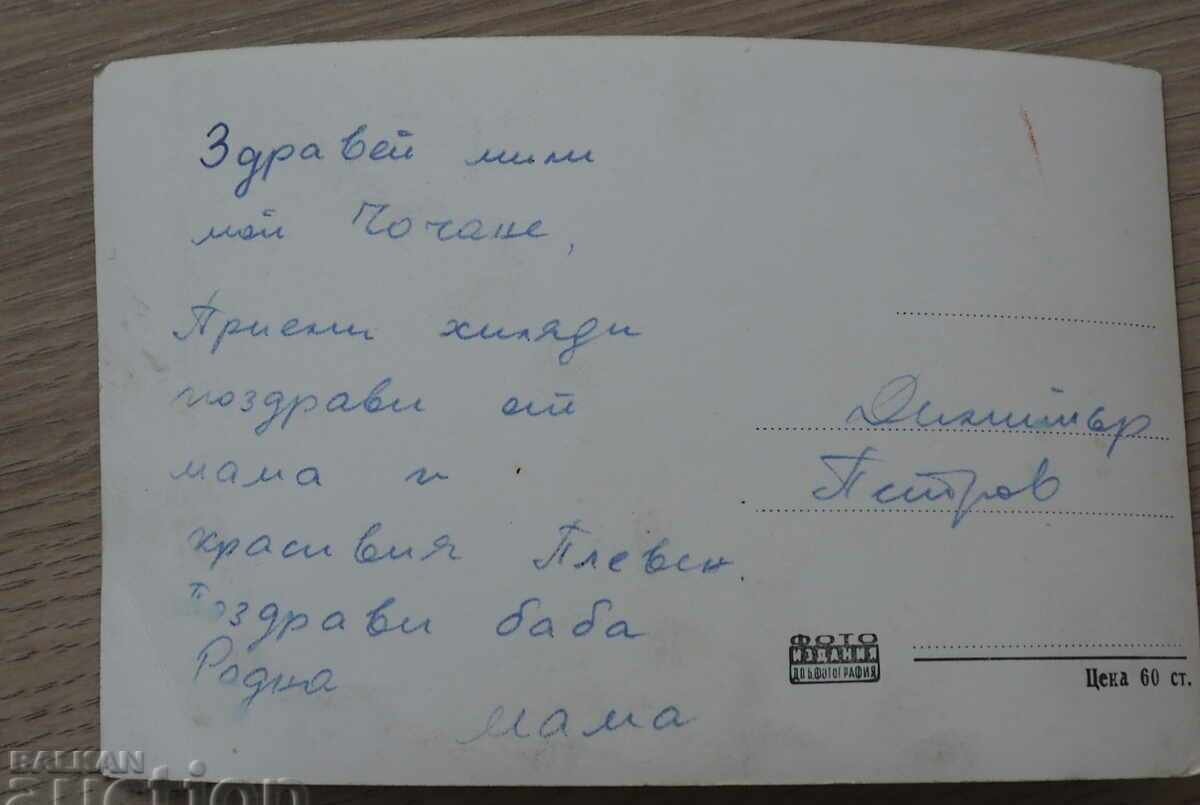 Здравей мили
мой Чочане,
Приеми хиляди
поздрави от
мама и
красивия Плевен.
Поздрави баба
Радка
Мама
Димитър
Петров
ФОТО
ИЗДАНИЯ
ДП БЪЛГ. ФОТОГРАФИЯ
Цена 60 ст.
BALKAN
auction